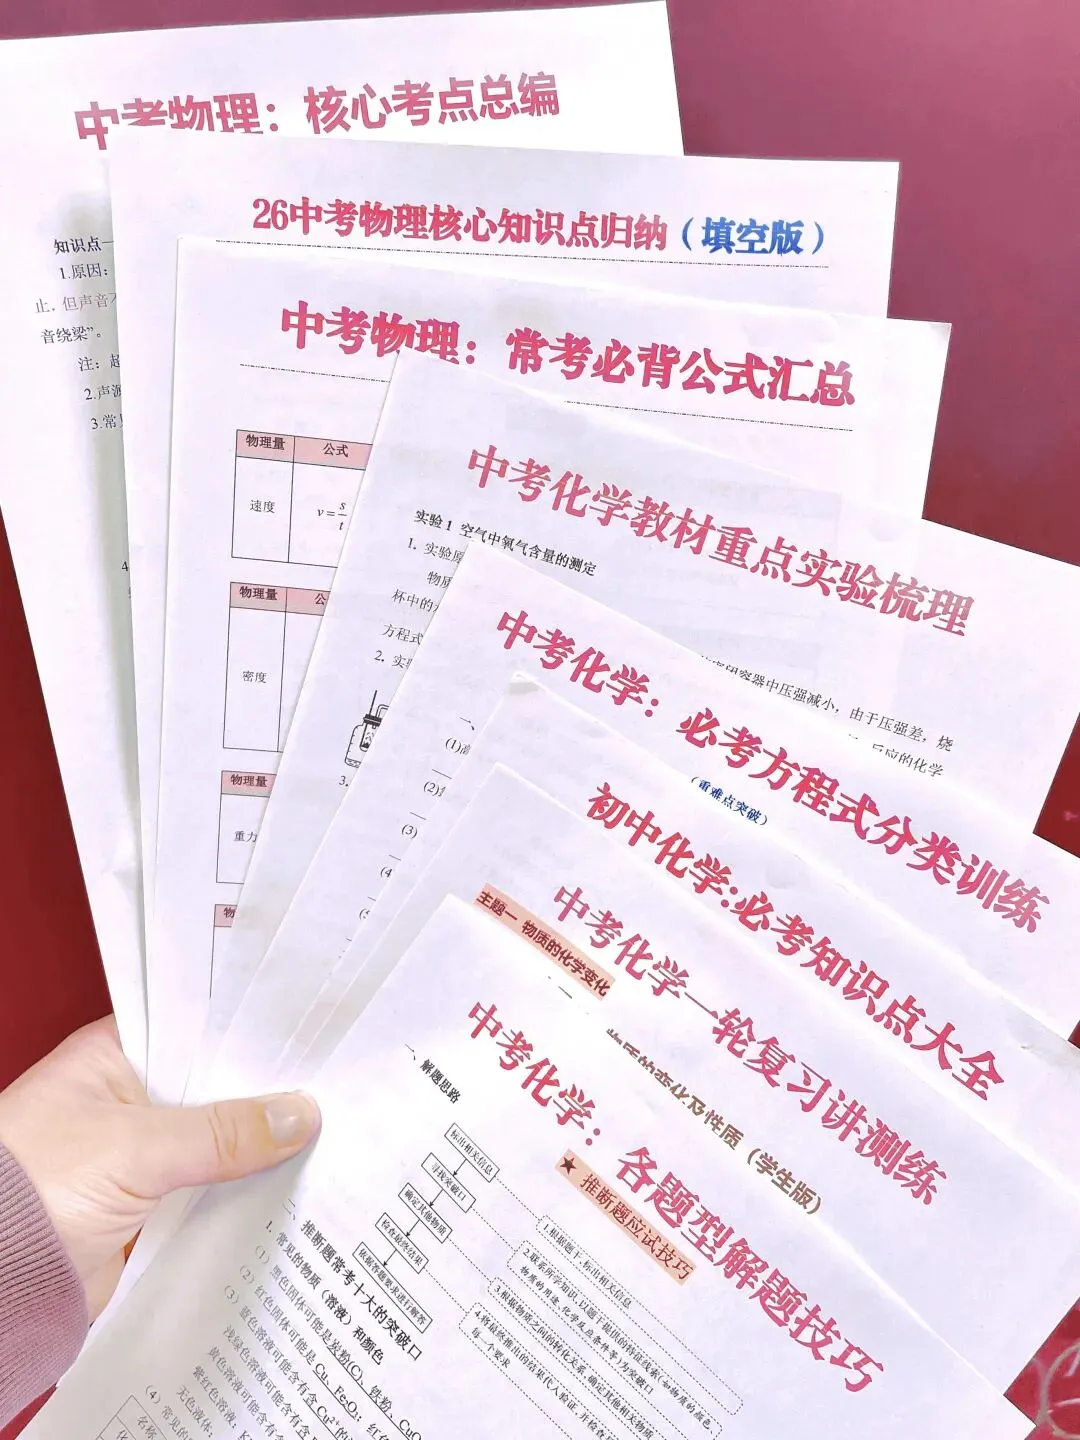 中考物理：核心考点总编
知识点一
1.原因：
止，但声音不
音绕梁”。
注：超
2.声源
3.常见
26中考物理核心知识点归纳（填空版）
中考物理：常考必背公式汇总
物理量 公式
速度 v=s/t
物理量 公
密度
物理量
重力
物
中考化学教材重点实验梳理
实验1 空气中氧气含量的测定
1. 实验原
物质
杯中的水
方程式
2. 实验
3.
容器中压强减小，由于压强差，烧
反应的化学
中考化学：必考方程式分类训练
（重难点突破）
一、
(1)
(2)
(3)
(4
初中化学:必考知识点大全
中考化学一轮复习讲测练
主题一 物质的化学变化
物质的变化及性质（学生版）
中考化学：各题型解题技巧
★ 推断题应试技巧
一、解题思路
标出相关信息
寻找突破口
确定其他物质
检查最终结果
依据答题要求进行解答
1.根据题干,标出相关信息
2.联系所学知识,以题干提供的特征线索(如物质的颜色、
物质的用途、化学反应条件等)为突破口
3.根据物质之间的转化关系,确定其他相关物质
4.将最终推出的结果代入验证,并检查
每一个要求
二、推断题常考十大的突破口
1. 常见的物质（溶液）和颜色
（1）黑色固体可能是炭粉(C)、铁粉、CuO
（2）红色固体可能是 Cu、Fe₂O₃；红
（3）蓝色溶液可能含有含 Cu²⁺的
浅绿色溶液可能含有含
黄色溶液可能含有含
紫红色溶液：K
无色液体：
（4）常见的
名称
化